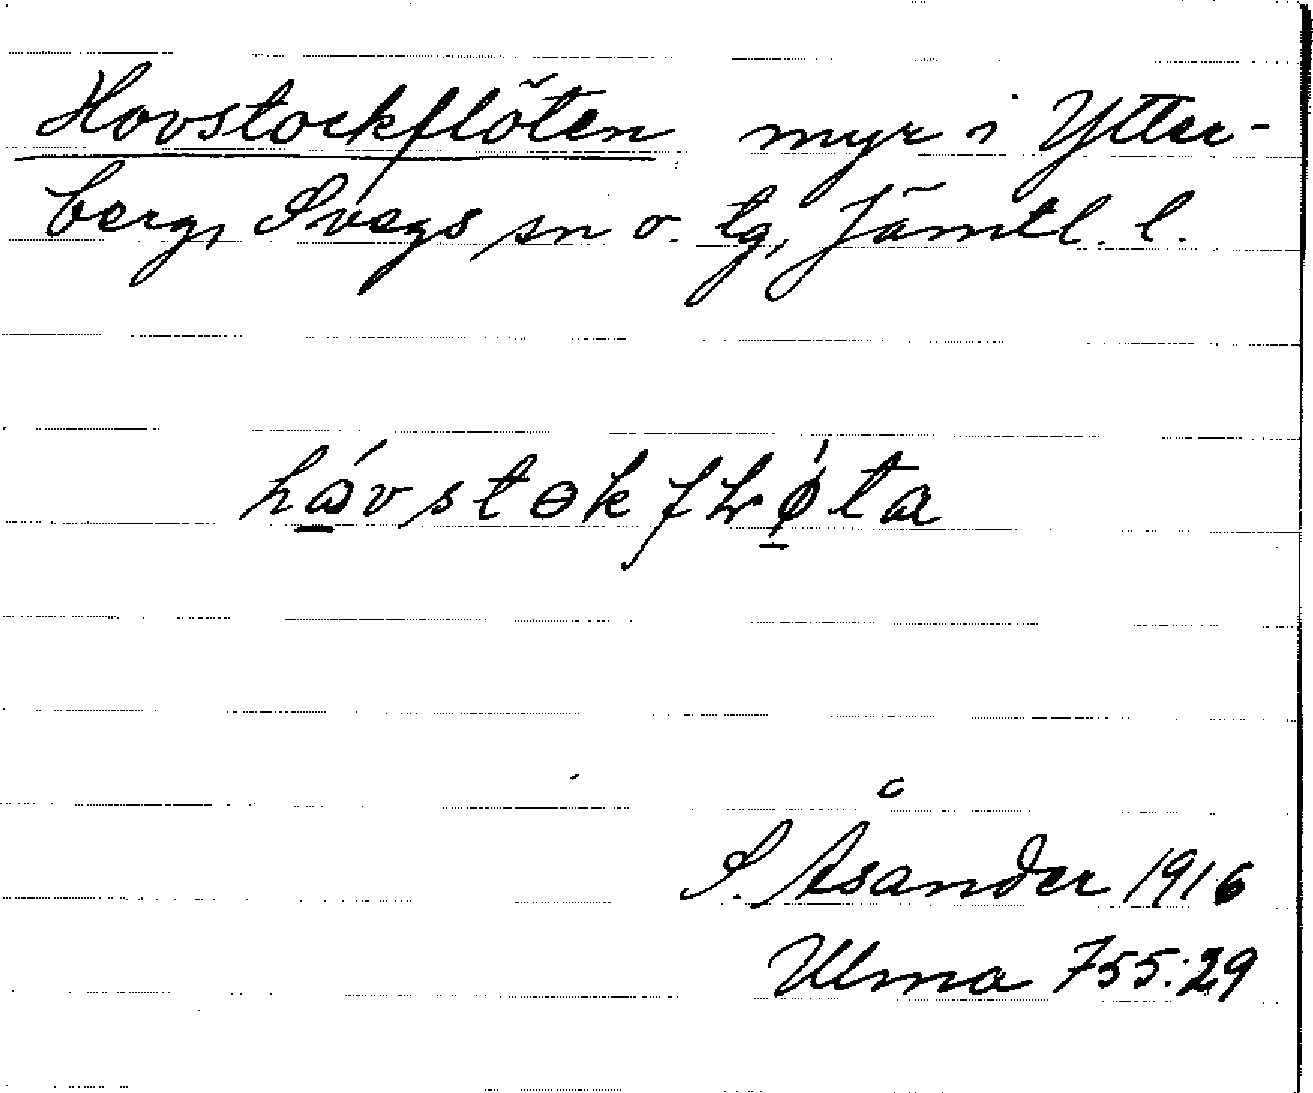 Hovstockflöten myr i Ytter-
berg, Svegs sn o. tg, Jämtl. l.
hɷ̱́vstɵkfꞭǿ̱ta
S. Åsander 1916
Ulma 755:29